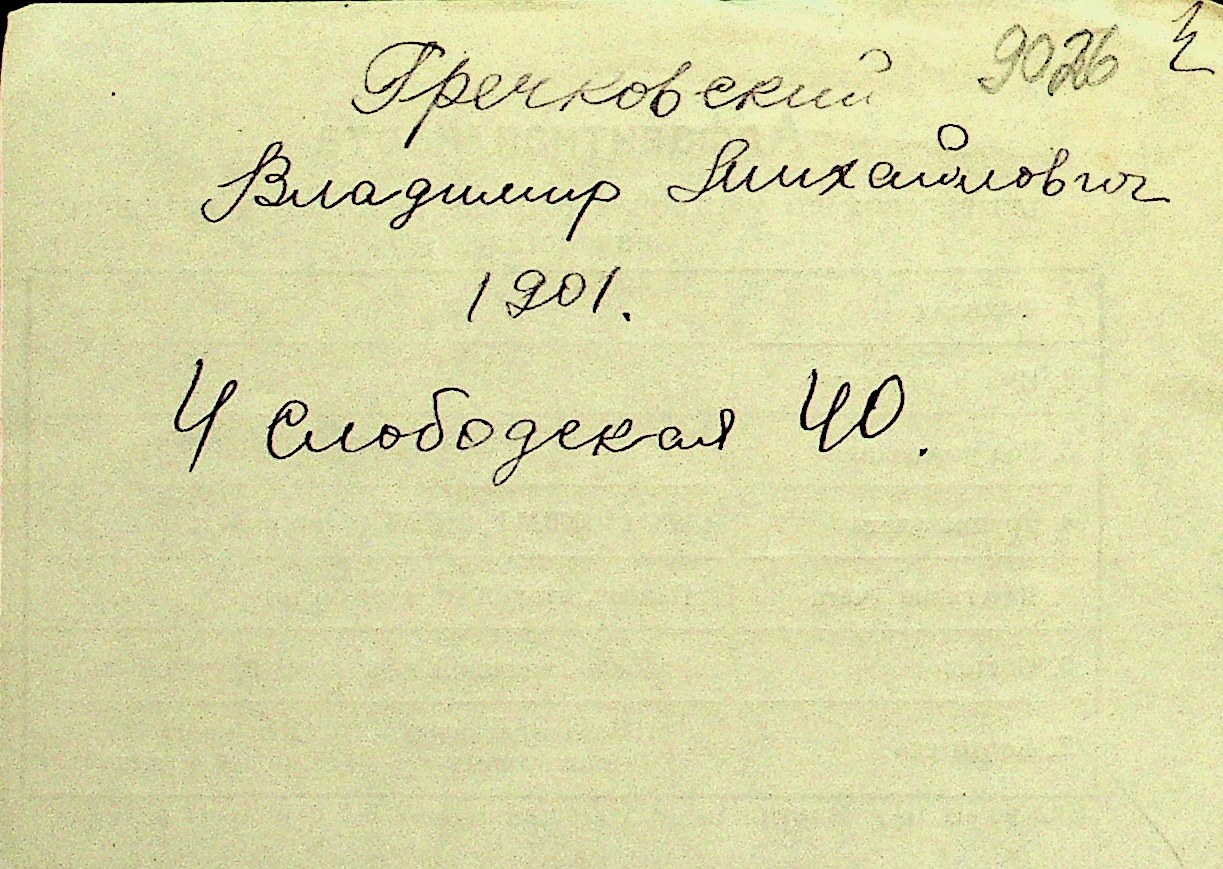 9026
Гречковский
Владимир Михайлович
1901.
4 Слободская 40.